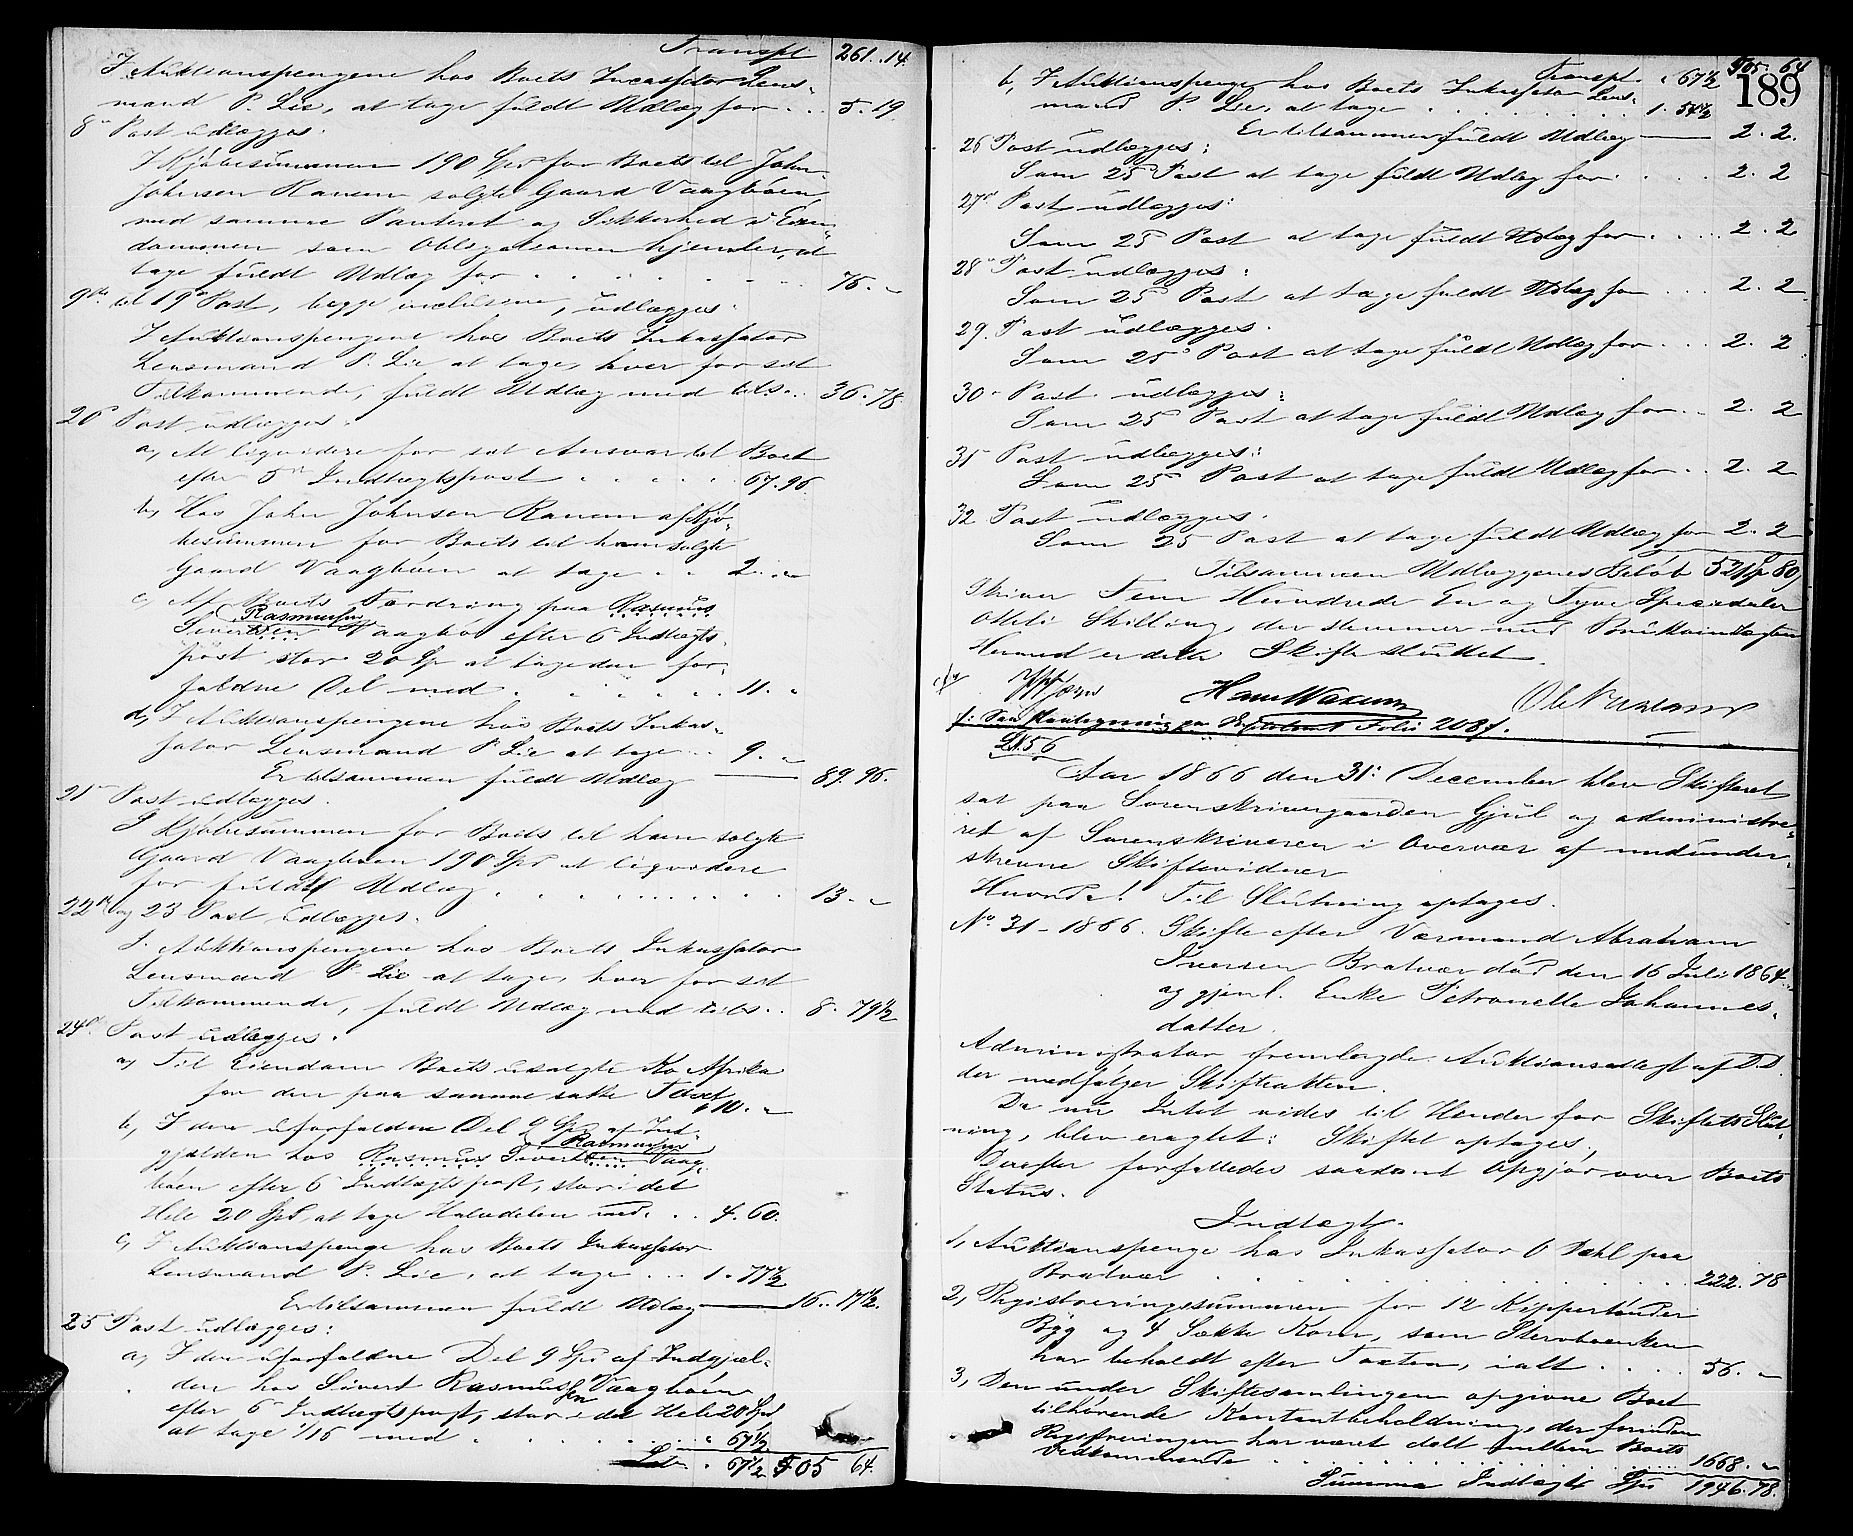 Transpt 261. 14.
I Auktionspengene hos Boets Incassator Lens-
mand P. Lie, at tage fuldt Udlæg for . . 5. 19.
8de Post udlægges.
I Kjøbesummen 190 Spd for Boets til John
Johnsen Ranem solgte Gaard Vaagbøen
med samme Panteret og Sikkerhed i Eien-
dommen som Obligationen hjemler, at
tage fuldt Udlæg for . . . . . 76. "
9de til 19de Post, begge inclusive, udlægges.
I Auktionspengene hos Boets Inkassator
Lensmand P. Lie at tage, hver for sit
Tilkommende, fuldt Udlæg med tils. . 36. 78.
20de Post udlægges.
a, At liqvidere for sit Ansvar til Boet
efter 5te Indtægtspost . . . . . 67. 96.
b, Hos John Johnsen Ranem af Kjø-
besummen for Boets til ham solgte
Gaard Vaagbøen at tage . . 2. "
c, Af Boets Fordring paa Rasmus
(Rasmussen
Sivertsen Vaagbø efter 6 Indtægts-
post stor 20 Sp at tage den for-
faldne Del med . . . . . 11. "
d, I Auktionspengene hos Boets Inkas-
sator Lensmand P. Lie at tage . . 9. "
Er tilsammen fuldt Udlæg — 89. 96.
21de Post udlægges.
I Kjøbesummen for Boets til ham solgte
Gaard Vaagbøen 190 Spd at liqvidere
for fuldt Udlæg . . . . . 13. "
22de og 23 Post Udlægges.
I Auktionspengene hos Boets Inkassator
Lensmand P. Lie at tage, hver for sit
Tilkommende, fuldt Udlæg med tils. . 8. 79½
24de Post udlægges.
a, Til Eiendom Boets usolgte Ko Afrika
for den paa samme satte Taxt 10. "
b, I den uforfaldne Del 9 Spd af Ind-
(Rasmussen
gjælden hos Rasmus Sivertsen Vaag-
bøen efter 6 Indtægtspost, stor i det
Hele 20 Spd, at tage Halvdelen med . . 4. 60.
c, I Auktionspenge hos Boets Inkassator
Lensmand P. Lie, at tage . . . 1. 77½
Er tilsammen fuldt Udlæg — 16. 17½.
25 Post udlægges:
a, I den uforfaldne Del 9 Spd af Indgjæl-
den hos Sivert Rasmussen Vaagbøen
efter 6 Indtægtspost, stor i det Hele 20 Spd
at tage 1/16 med . . . . . " 67½
Lat. " 67½ 505 64.
189
Transpt. " 67½ 505. 64
b, I Auktionspenge hos Boets Inkassator Lens-
mand P. Lie, at tage . . . . . 1. 54½
Er tilsammen fuldt Udlæg — 2. 2.
26 Post udlægges:
Som 25 Post at tage fuldt Udlæg for . . . . 2. 2
27de Post udlægges:
Som 25 Post at tage fuldt Udlæg for . . . . 2. 2
28de Post udlægges:
Som 25 Post at tage fuldt Udlæg for . . . 2. 2
29. Post udlægges.
Som 25 Post at tage fuldt Udlæg for . . . 2. 2
30. Post udlægges:
Som 25 Post at tage fuldt Udlæg for . . 2. 2
31 Post udlægges:
Som 25 Post at tage fuldt Udlæg for . . 2. 2
32 Post udlægges.
Som 25 Post at tage fuldt Udlæg for 2. 2
Tilsammen Udlæggenes Beløb 521 Sp 80,
skriver Fem Hundrede En og Tyve Speciedaler
otteti Skilling, der stemmer med Bruttoindtægten
Hermed er dette Skifte sluttet.
Hans Waxum
Folio 208f.
2156
Aar 1866 den 31: December blev Skifteret
sat paa Sorenskrivergaarden Gjul og administre-
ret af Sorenskriveren i Overvær af medunder-
skrevne Skiftevidner
Hvorda! Til Slutning optoges.
No. 31 - 1866. Skifte efter Værmand Abraham
Iversen Bratvær død den 16 Juli 1864,
og gjenl. Enke Petronelle Johannes-
datter.
Administrator fremlagde Auktionsudtogt af D.D.
der medfølger Skifteakten.
Da nu Intet vides til Hinder for Skiftets Slut-
ning, blev eragtet: Skiftet optages;
Derefter forfattedes saadant Opgjør over Boets
Status.
Indtægt.
1, Auktionspenge hos Inkassator O Dahl paa
Bratvær . . . . . 222. 78
2, Registreringssummen for 12 Kippertønder
Byg og 4 Sække Korn, som Stervboenken
har beholdt efter Taxten, ialt . . . . 56. "
3, Den under Skiftesamlingen opgivne Boet
tilhørende Kontantbeholdning, der forinden
Registreringen har været delt mellem Boets
Vedkommende . . . . . 1668. "
Summa Indtægt Spd 1946. 78.